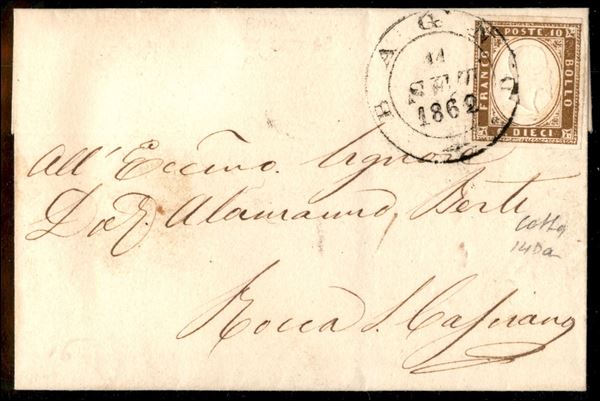 BAGNO
11
1862
FRANCO
POSTE 10
BOLLO
DIECI
All' Eccmo. Signore
Dot. Alamanno Berti
Rocca S. Casciano
14Da